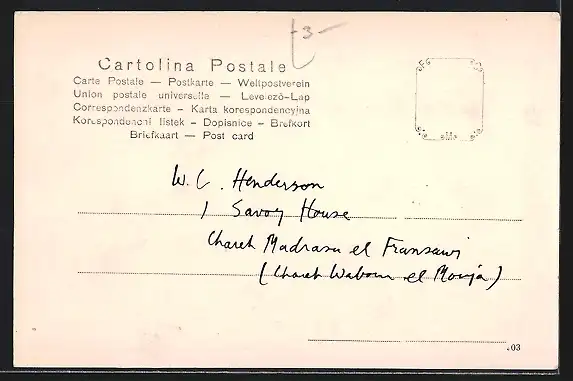 -3-
Cartolina Postale
Carte Postale — Postkarte — Weltpostverein
Union postale universelle — Levelező-Lap
Correspondenzkarte – Karta korespondencyjna
Korespondenční lístek – Dopisnice – Brefkort
Briefkaart — Post card
W. C. Henderson
1 Savoy House
Chareh Madrasa el Fransawi
(Chareh Wabour el Moya)
.03